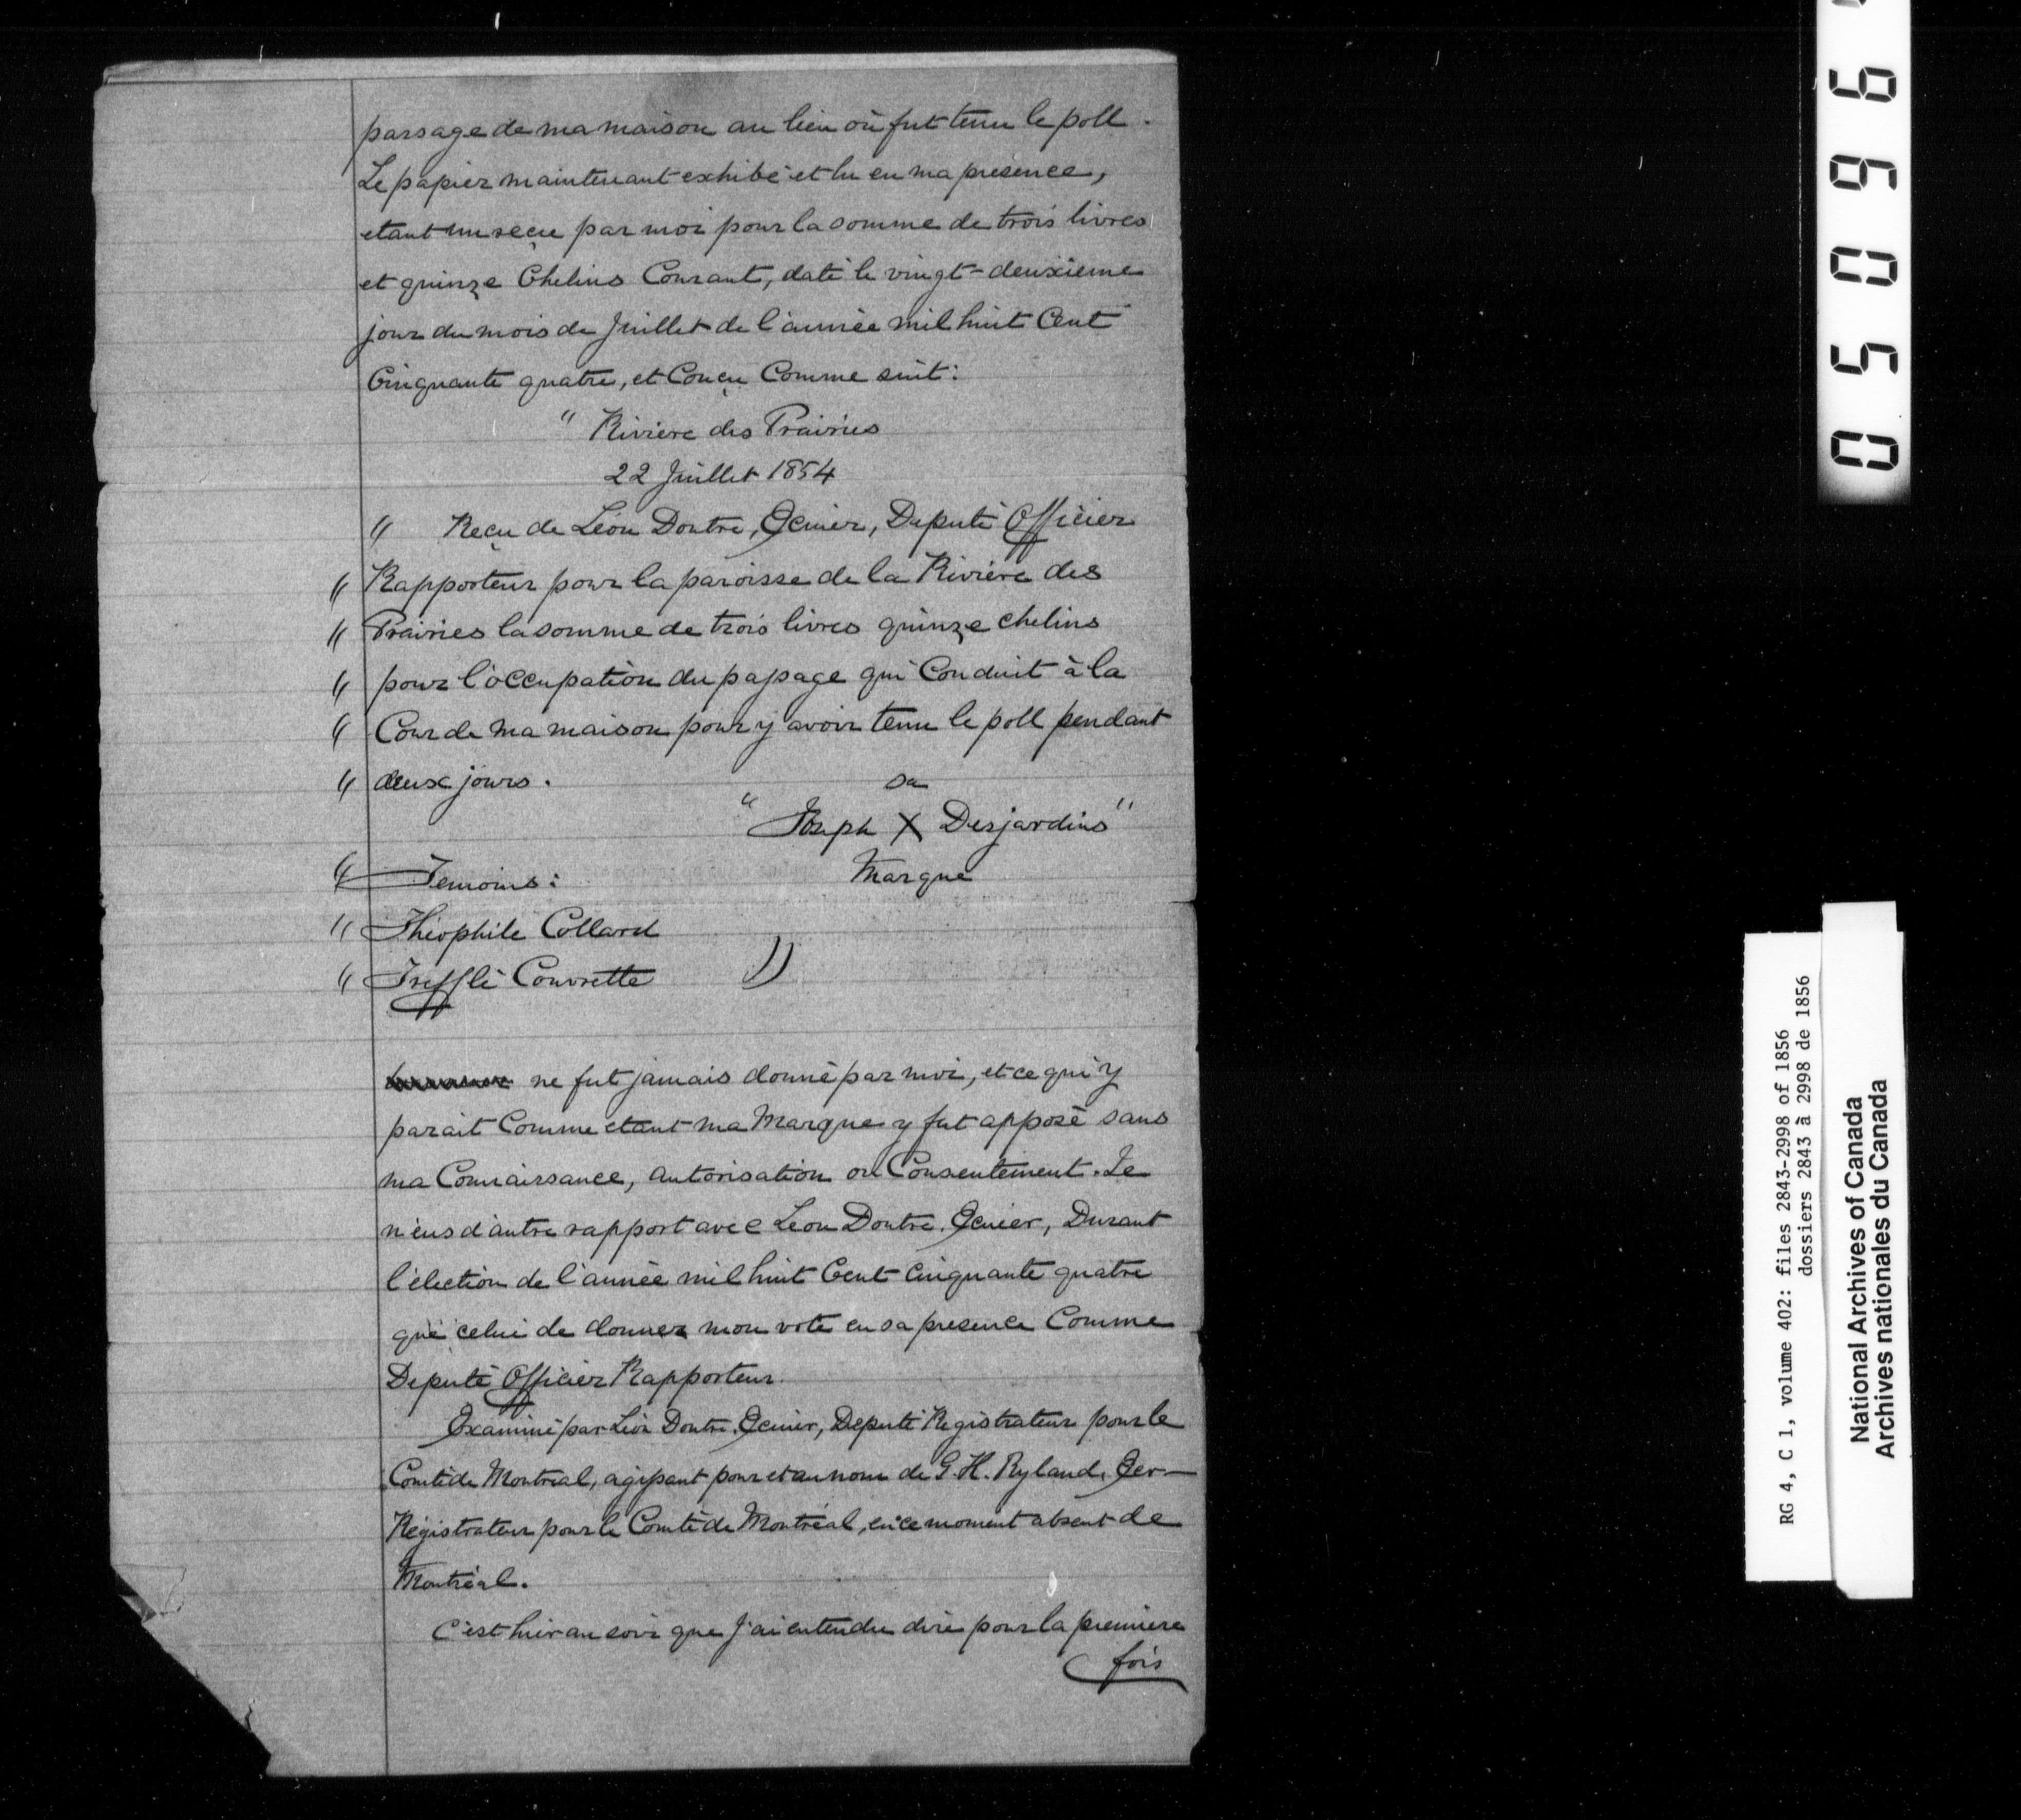 passage de ma maison au lieu où fut tenu le poll.
Le papier maintenant exhibé et lu en ma présence,
etant un reçu par moi pour la somme de trois livres
et quinze Chelins Courant, daté le vingt-deuxième
jour du mois de Juillet de l'année mil huit Cent
Cinquante quatre, et Conçu Comme suit:
" Rivière des Prairies
22 Juillet 1854
" Reçu de Léon Doutre, Ecuier, Député Officier
" Rapporteur pour la paroisse de la Rivière des
" Prairies la somme de trois livres quinze chelins
" pour l'occupation du passage qui Conduit à la
" Cour de ma maison pour y avoir tenu le poll pendant
" deux jours.
sa
" Joseph X Desjardins "
Marque
" Temoins:
" Théophile Collard
" Trefflé Couvrette "
ne fut jamais donné par moi, et ce qui y
parait Comme etant ma Marque y fut apposé sans
ma Connaissance, autorisation ou Consentement. Je
n'eus d'autre rapport avec Léon Doutre, Ecuier, Durant
l'élection de l'année mil huit Cent Cinquante quatre
que celui de donner mon vote en sa présence Comme
Député Officier Rapporteur.
Examiné par Léon Doutre, Ecuier, Député Régistrateur pour le
Comté de Montréal, agissant pour et au nom de G. H. Ryland, Ecr-
Régistrateur pour le Comté de Montréal, en ce moment absent de
Montréal.
C'est hier au soir que j'ai entendu dire pour la première
fois
05096
RG 4, C 1, volume 402: files 2843-2998 of 1856
dossiers 2843 à 2998 de 1856
National Archives of Canada
Archives nationales du Canada